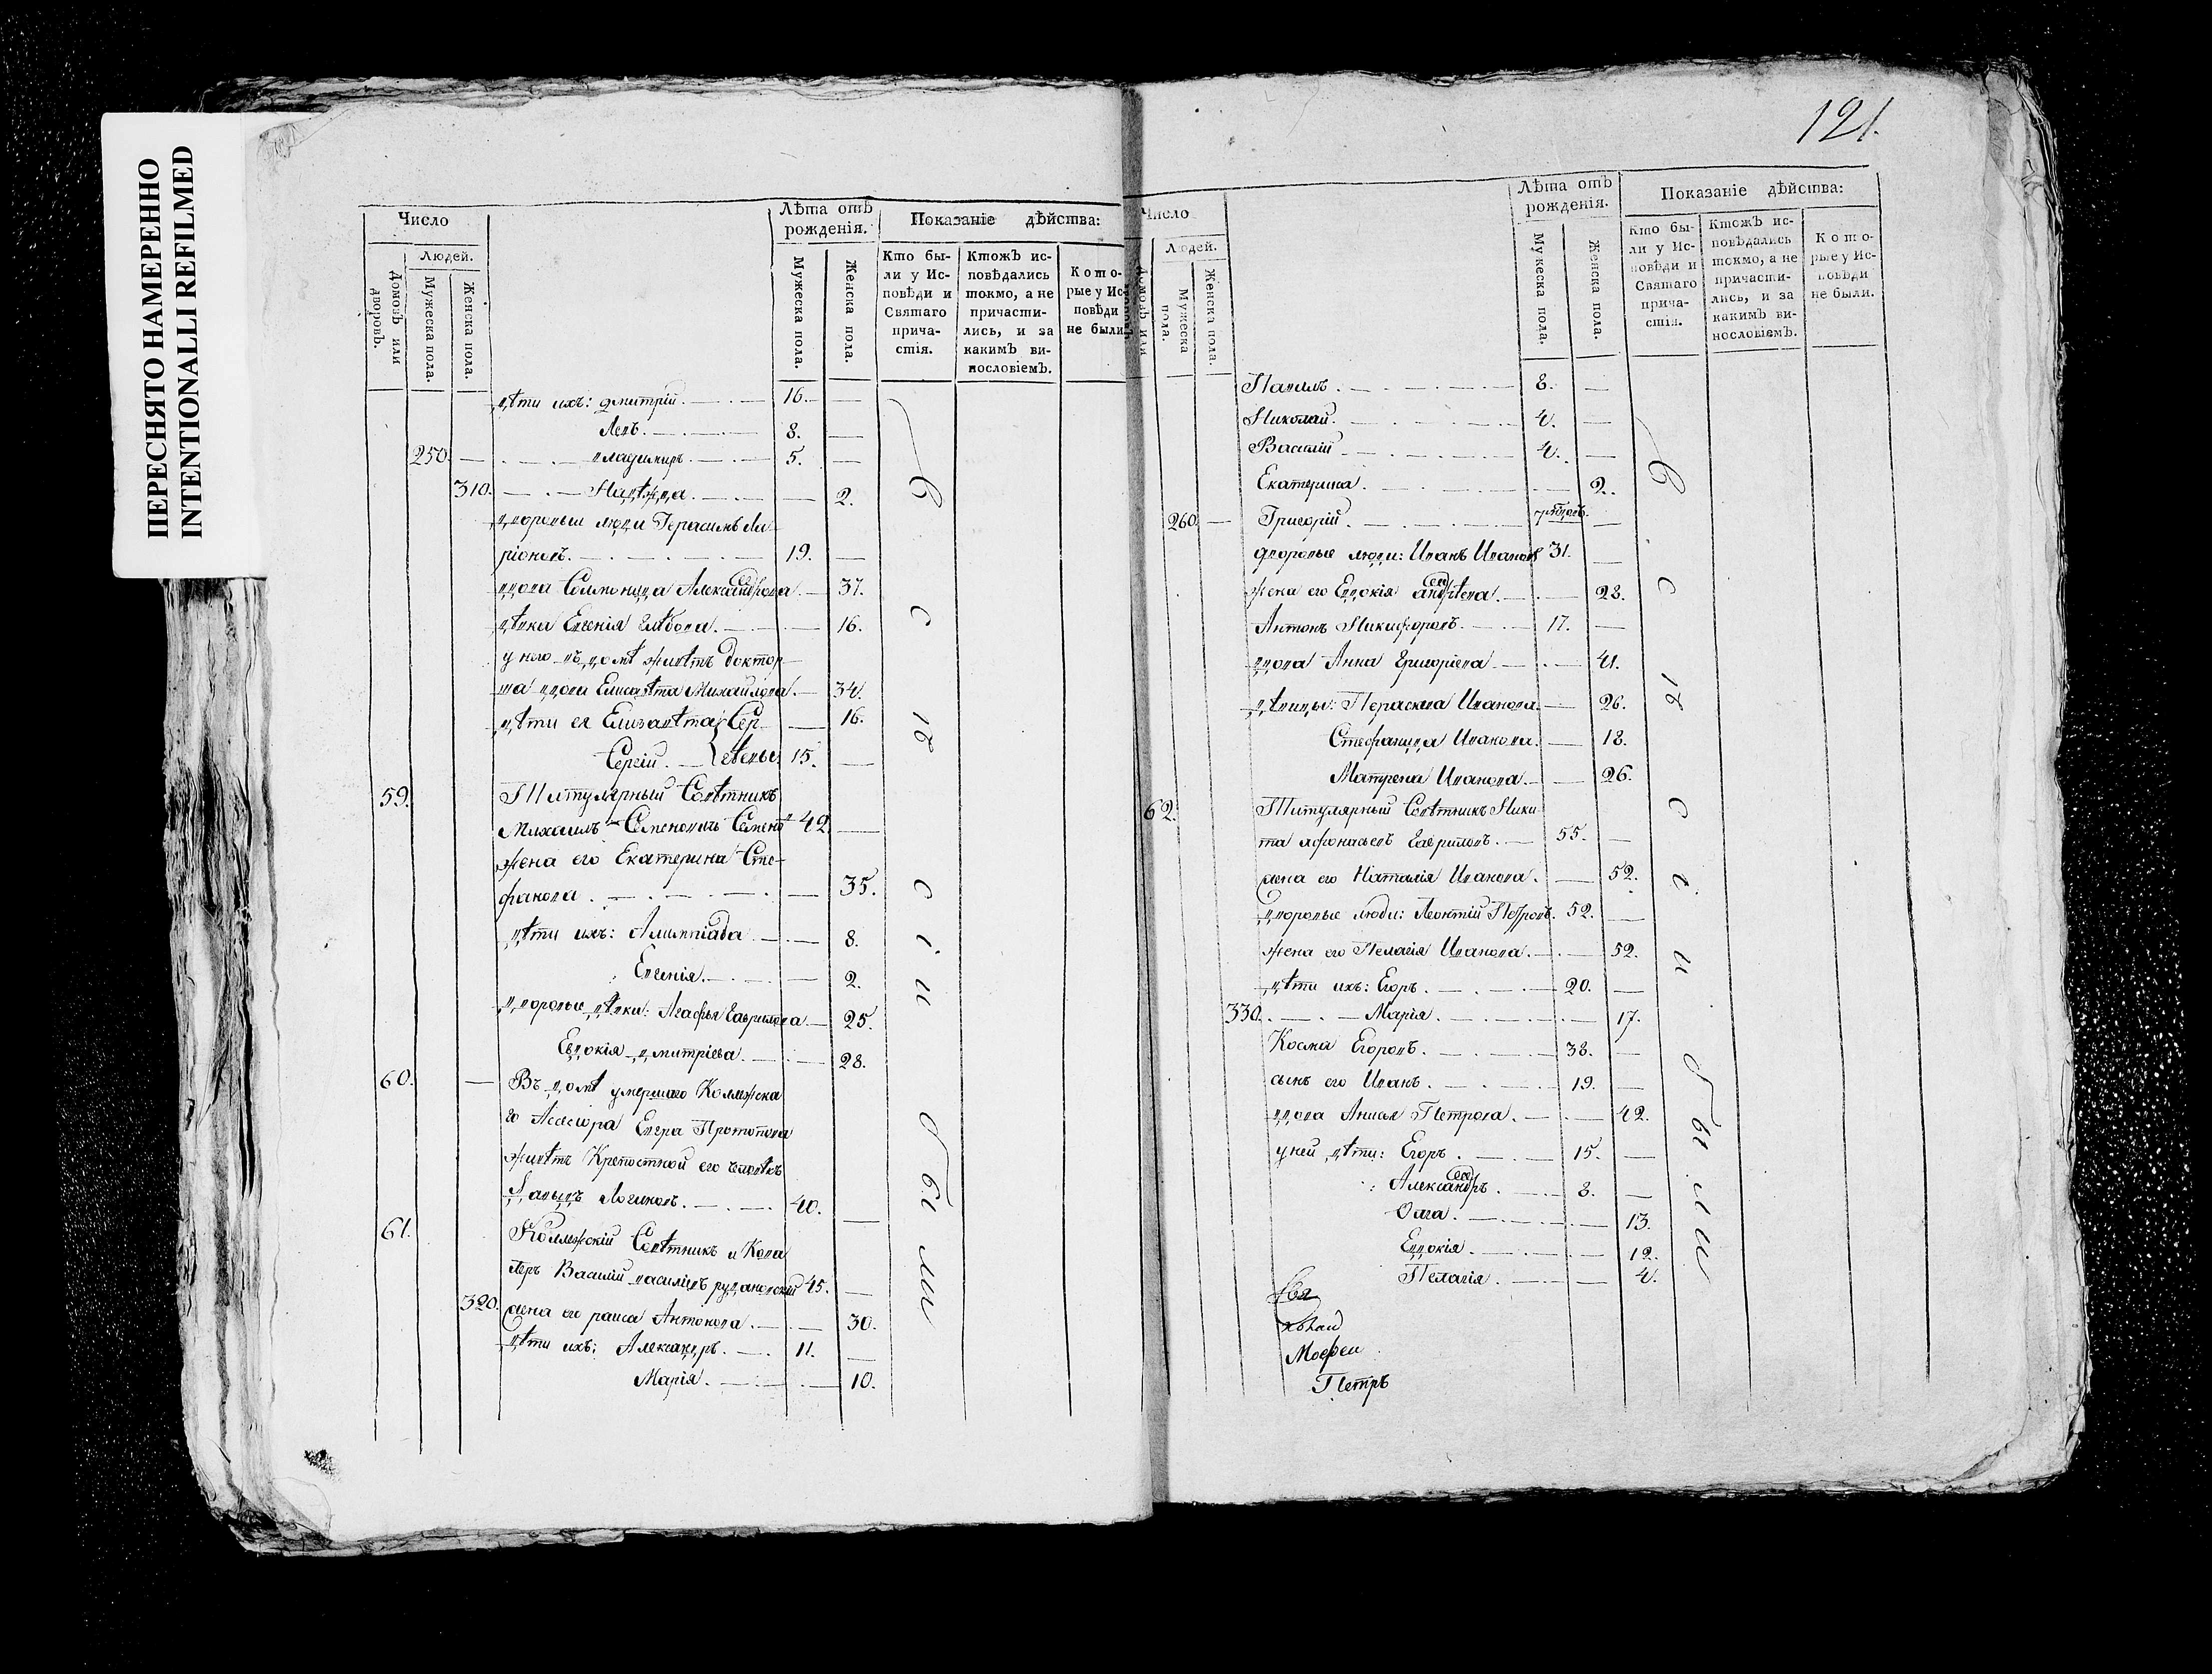 ПЕРЕСНЯТО НАМЕРЕННО
INTENTIONALLI REFILMED
Число
Людей.
Домовъ или дворовъ.
Мужеска пола.
Женска пола.
Лѣта отъ рожденія.
Мужеска пола.
Женска пола.
Показаніе дѣйства:
Кто были у Исповѣди и Святаго причастія.
Ктожъ исповѣдались токмо, а не причастились, и за какимъ винословіемъ.
Которые у Исповѣди не были.
дѣти ихъ: Дмитрій. 16.
Левъ. 8.
250. Владимиръ. 5.
310. Надѣжда. 2.
дворовыи люди Герасимъ Ла-
ріоновъ. 19.
вдова Соломонида Александрова 37.
дѣвки Евгенія Глѣбова. 16.
у него въ домѣ живѣтъ доктор-
ша вдова Елисавѣта Михайлова. 34.
дѣти ея Елизавѣта 16.
Сергій. 15.
59. Титулярный Совѣтникъ
Михаилъ Семеновичь Семенов 42.
жена его Екатерина Сте-
фанова. 35.
дѣти ихъ: Алимпіада 8.
Евгенія. 2.
дворовыи дѣвки: Агафья Гаврилова 25.
Евдокія дмитріева. 28.
60. Въ домѣ умершаго Коллежска
го Асесіора Егора Протопопова
живѣтъ Крепостной его человѣкъ
Давыдъ Логиновъ. 40.
61. Коллежскій Совѣтникъ и Кава
леръ Василій василіевъ рудановскій 45.
320. жена его раиса Антонова. 30.
дѣти ихъ: Александръ. 11.
Марія. 10.
всѣ
были
121.
Число
Людей.
Мужеска пола.
Женска пола.
Лѣта отъ рожденія.
Мужеска пола.
Женска пола.
Показаніе дѣйства:
Кто были у Исповѣди и Святаго причастія.
Ктожъ исповѣдались токмо, а не причастились, и за какимъ винословіемъ.
Которые у Исповѣди не были.
Павилъ. 8.
Николай. 4.
Василій 4.
Екатерина. 2.
260. Григорій.
дворовые люди: Иванъ Ивановъ 31.
жена его Евдокія андрѣева. 28.
Антонъ Никифоровъ. 17.
вдова Анна Григоріева 41.
дѣвицы: Пераскева Иванова. 26.
Стефанида Иванова. 18.
Матрена Иванова. 26.
62. Титулярный Совѣтникъ Ники
та афонасьевъ Гавриловъ. 55.
жена его Наталія Иванова. 52.
дворовые люди: Леонтій Петровъ. 52.
жена его Пелагія Иванова. 52.
дѣти ихъ: Егоръ. 20.
330. Марія. 17.
Косма Егоровъ. 38.
сынъ его Иванъ. 19.
вдова Анисья Петрова. 42.
у ней дѣти: Егоръ. 15.
Александръ. 8.
Олга. 13.
Евдокія. 12.
Пелагія. 4.
Мофеи
Петръ
были